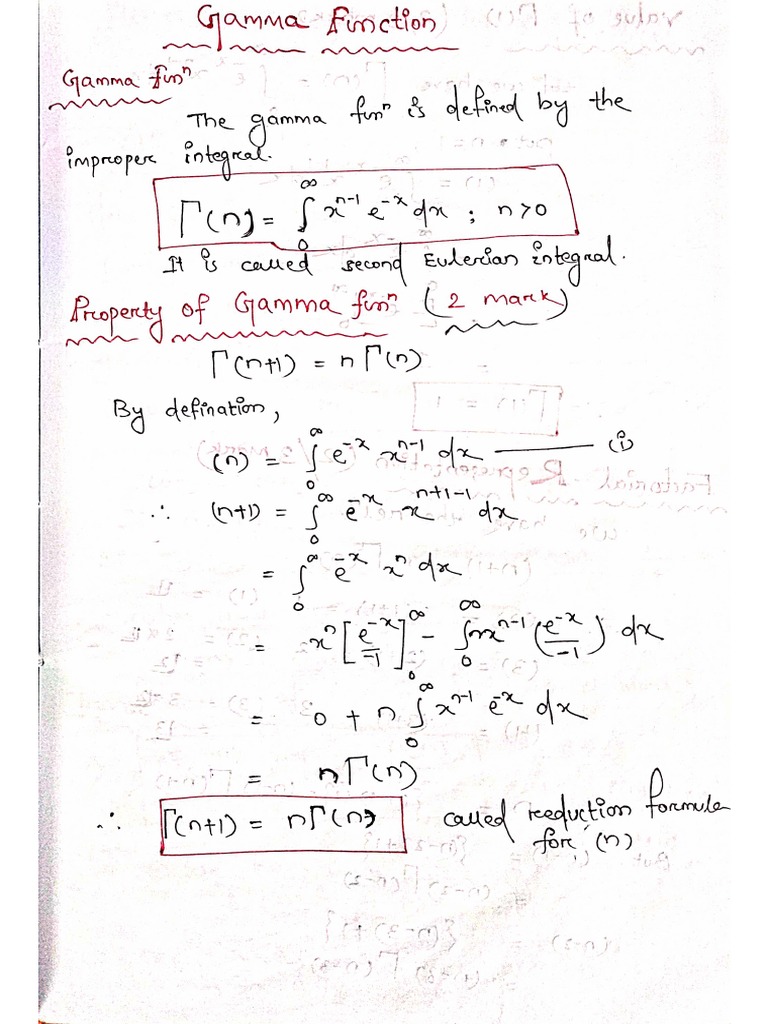 Gamma Function
Gamma funⁿ
The gamma funⁿ is defined by the
improper integral.
Γ(n) = ∫₀^∞ xⁿ⁻¹ e⁻ˣ dx ; n>0
It is called second Eulerian integral.
Property of Gamma funⁿ (2 mark)
Γ(n+1) = n Γ(n)
By defination,
(n) = ∫₀^∞ e⁻ˣ xⁿ⁻¹ dx ——— (i)
∴ (n+1) = ∫₀^∞ e⁻ˣ xⁿ⁺¹⁻¹ dx
= ∫₀^∞ e⁻ˣ xⁿ dx
= xⁿ [e⁻ˣ/-1]₀^∞ - ∫₀^∞ nxⁿ⁻¹ (e⁻ˣ/-1) dx
= 0 + n ∫₀^∞ xⁿ⁻¹ e⁻ˣ dx
= nΓ(n)
∴ Γ(n+1) = nΓ(n) called reeduction formula
for (n)